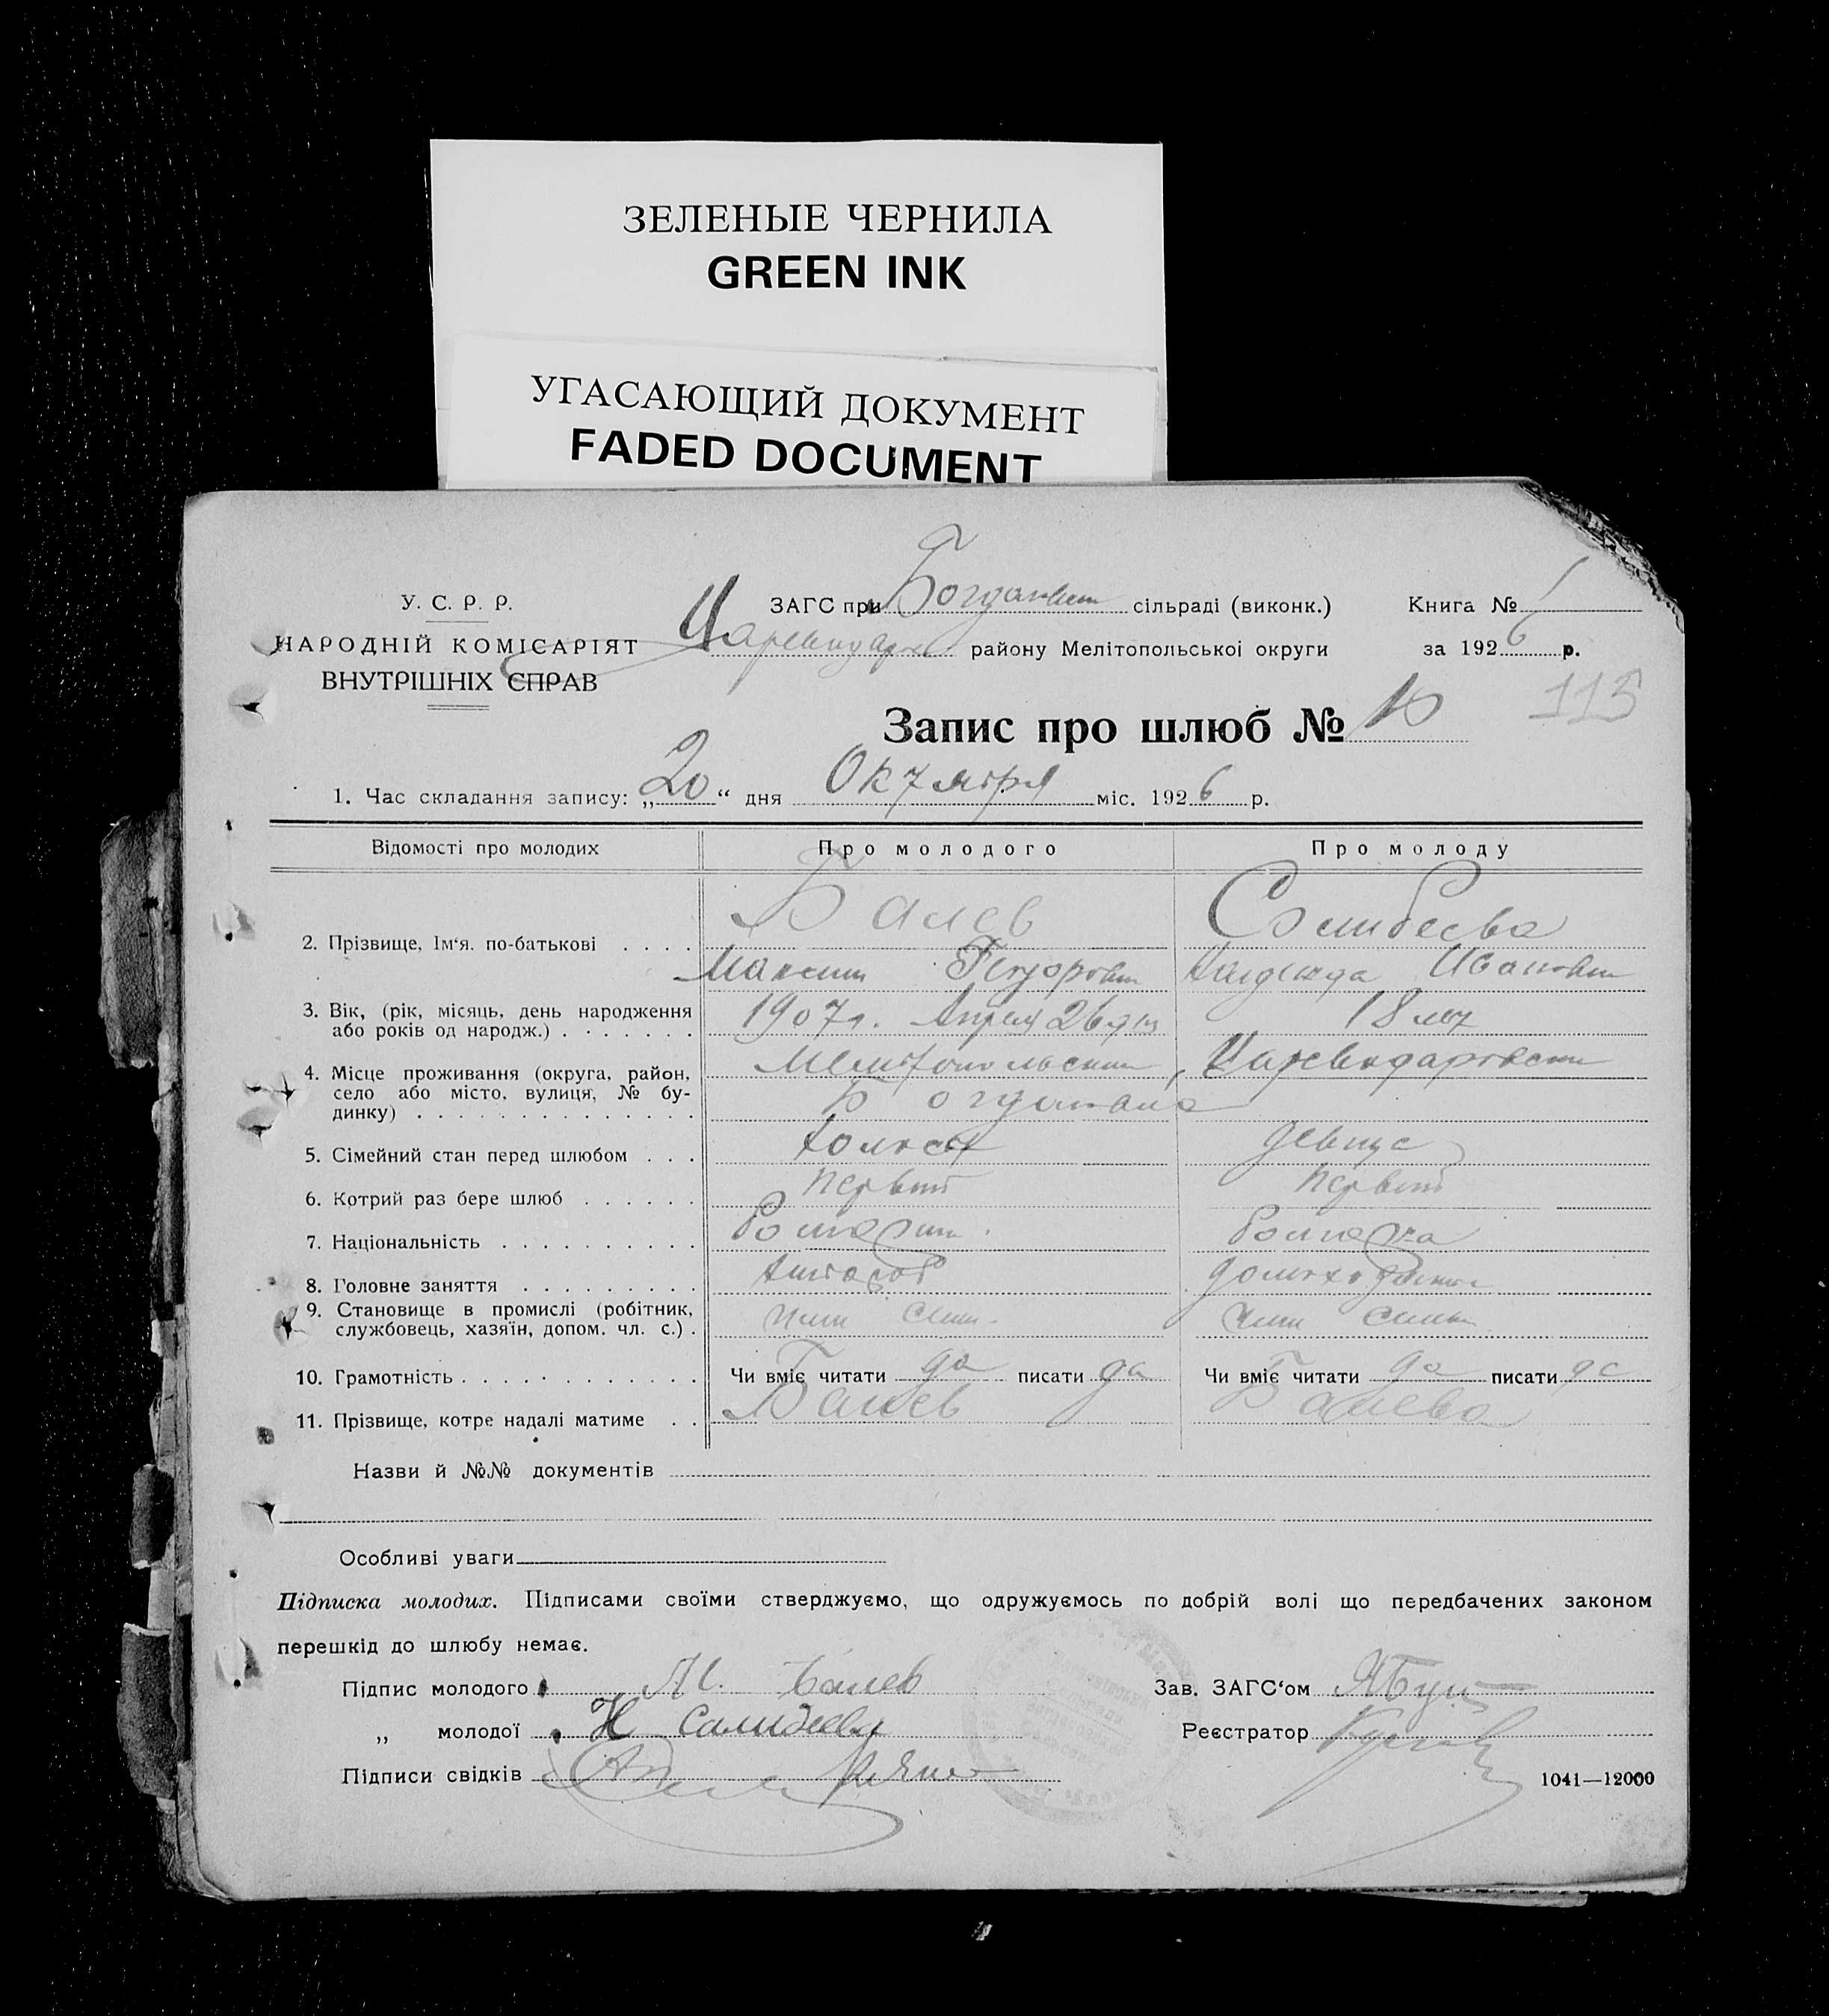 ЗЕЛЕНЫЕ ЧЕРНИЛА
GREEN INK
УГАСАЮЩИЙ ДОКУМЕНТ
FADED DOCUMENT
У. С. Р. Р.
НАРОДНІЙ КОМІСАРІЯТ
ВНУТРІШНІХ СПРАВ
ЗАГС при сільраді (виконк.)
району Мелітопольської округи
Книга № 1
за 1926 р.
115
Запис про шлюб № 10
1. Час складання запису: „20“ дня Октября міс. 1926 р.
Відомості про молодих Про молодого Про молоду
2. Прізвище, Ім'я. по-батькові . . . . Балев
Максим Надежда
3. Вік, (рік, місяць, день народження
або років од народж.) . . . . . . . 1907г. Апреля 26 дня 18 лет
4. Місце проживання (округа, район,
село або місто, вулиця, № бу-
динку) . . . . . . . . . . . . . .
5. Сімейний стан перед шлюбом . . . холост девица
6. Котрий раз бере шлюб . . . . . . первый первый
7. Національність . . . . . . . . . .
8. Головне заняття . . . . . . . . .
9. Становище в промислі (робітник,
службовець, хазяїн, допом. чл. с.) . член сем. член семьи
10. Грамотність . . . . . . . . . . . . Чи вміє читати да писати да Чи вміє читати да писати да
11. Прізвище, котре надалі матиме . . Балев Балева
Назви й №№ документів
Особливі уваги
Підписка молодих. Підписами своїми стверджуємо, що одружуємось по добрій волі що передбачених законом
перешкід до шлюбу немає.
Підпис молодого М. Балев
„ молодої Н
Підписи свідків
Зав. ЗАГС'ом
Реєстратор
1041—12000